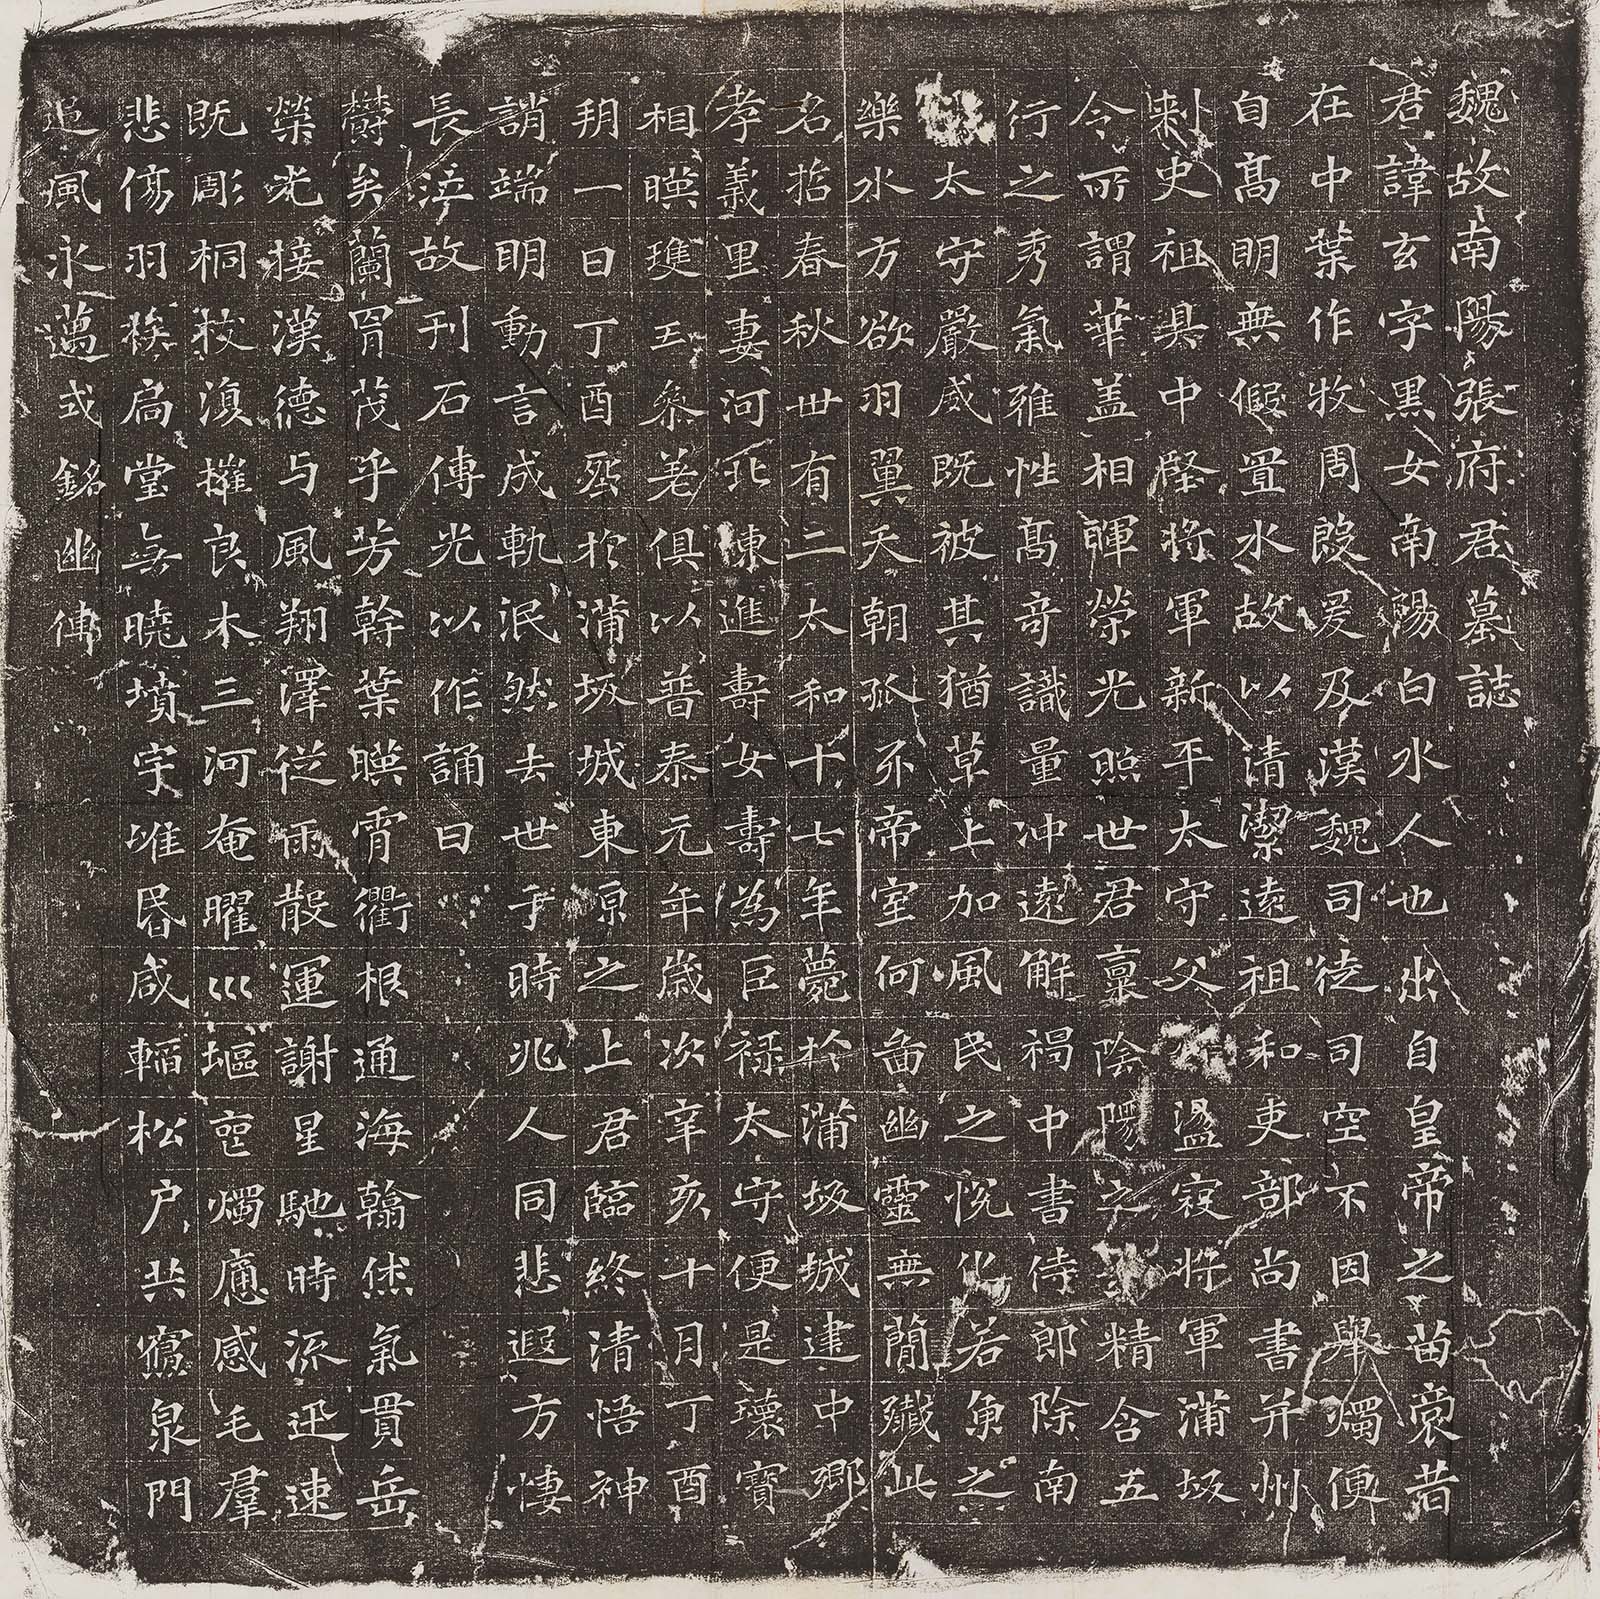 魏故南陽張府君墓誌
君諱玄字黑女南陽白水人也出自皇帝之苗裔昔
在中葉作牧周殷爰及漢魏司徒司空不因舉燭便
自高明無假置水故以清潔遠祖和吏部尚書并州
刺史祖具中堅將軍新平太守父盪寇將軍蒲坂
令所謂華盖相暉榮光照世君稟陰陽之精含五
行之秀氣雅性高奇識量沖遠解褐中書侍郎除南
太守嚴威既被其猶草上加風民之悅化若魚之
樂水方欲羽翼天朝抓牙帝室何啚幽靈無簡殲此
名哲春秋卅有二太和十七年薨於蒲坂城建中鄉
孝義里妻河北陳進壽女壽為巨祿太守便是瓌寶
相暎瓊玉參差俱以普泰元年歲次辛亥十月丁酉
朔一日丁酉葬於蒲坂城東原之上君臨終清悟神
誚端明動言成軌泯然去世于時兆人同悲遐方悽
長泣故刊石傳光以作誦曰
欝矣蘭冑茂乎芳幹葉暎霄衢根通海翰絥氣貫岳
榮光接漢德与風翔澤從雨散運謝星馳時流迅速
既彫桐枝復摧良木三河奄曜巛塸喪燭痝感毛羣
悲傷羽族扃堂無曉墳宇唯昏咸輼松戶共寢泉門
追風永邁式銘幽傳